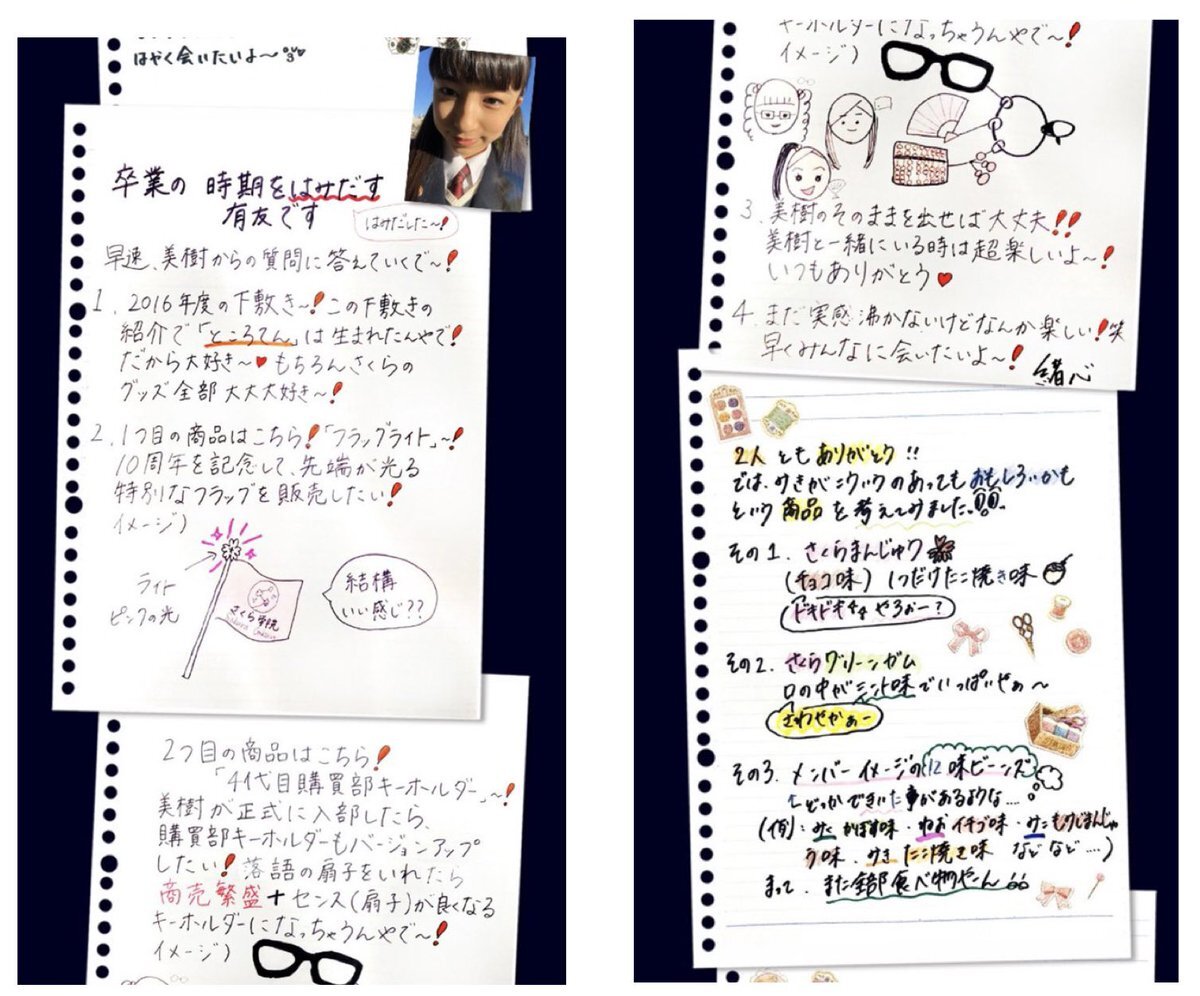 はやく会いたいよ〜
卒業の 時期をはみだす
有友です
はみだした〜!
早速、美樹からの質問に答えていくで〜!
1. 2016年度の下敷き〜!この下敷きの
紹介で「ところてん」は生まれたんやで!
だから大好き〜♥もちろんさくらの
グッズ全部大大大好き〜!
2. 1つ目の商品はこちら!「フラッグライト」〜!
10周年を記念して、先端が光る
特別なフラッグを販売したい!
イメージ)
ライト
ピンクの光
さくら学院
結構
いい感じ??
2つ目の商品はこちら!
「4代目購買部キーホルダー」〜!
美樹が正式に入部したら、
購買部キーホルダーもバージョンアップ
したい!落語の扇子をいれたら
商売繁盛+センス(扇子)が良くなる
キーホルダーになっちゃうんやで〜!
イメージ)
キーホルダーになっちゃうんやで〜!
イメージ)
3. 美樹のそのままを出せば大丈夫!!
美樹と一緒にいる時は超楽しいよ〜!
いつもありがとう♥
4. まだ実感沸かないけどなんか楽しい!笑
早くみんなに会いたいよ〜!
緒心
2人ともありがとう!!
では、みきがこういうのあってもおもしろいかも
という商品を考えてみました。
その1. さくらまんじゅう
(チョコ味) 1つだけたこ焼き味
ドキドキちゃうやろぉー?
その2. さくらグリーンガム
口の中がミント味でいっぱいやぁ〜
さわやかぁー
その3. メンバーイメージの12味ビーンズ
↳どっかできいた事があるような....
(例)・みく かぼす味・ねお イチゴ味・みこ もみじまんじゅ
う味・みき たこ焼き味 などなど....)
まって、また全部食べ物やーん